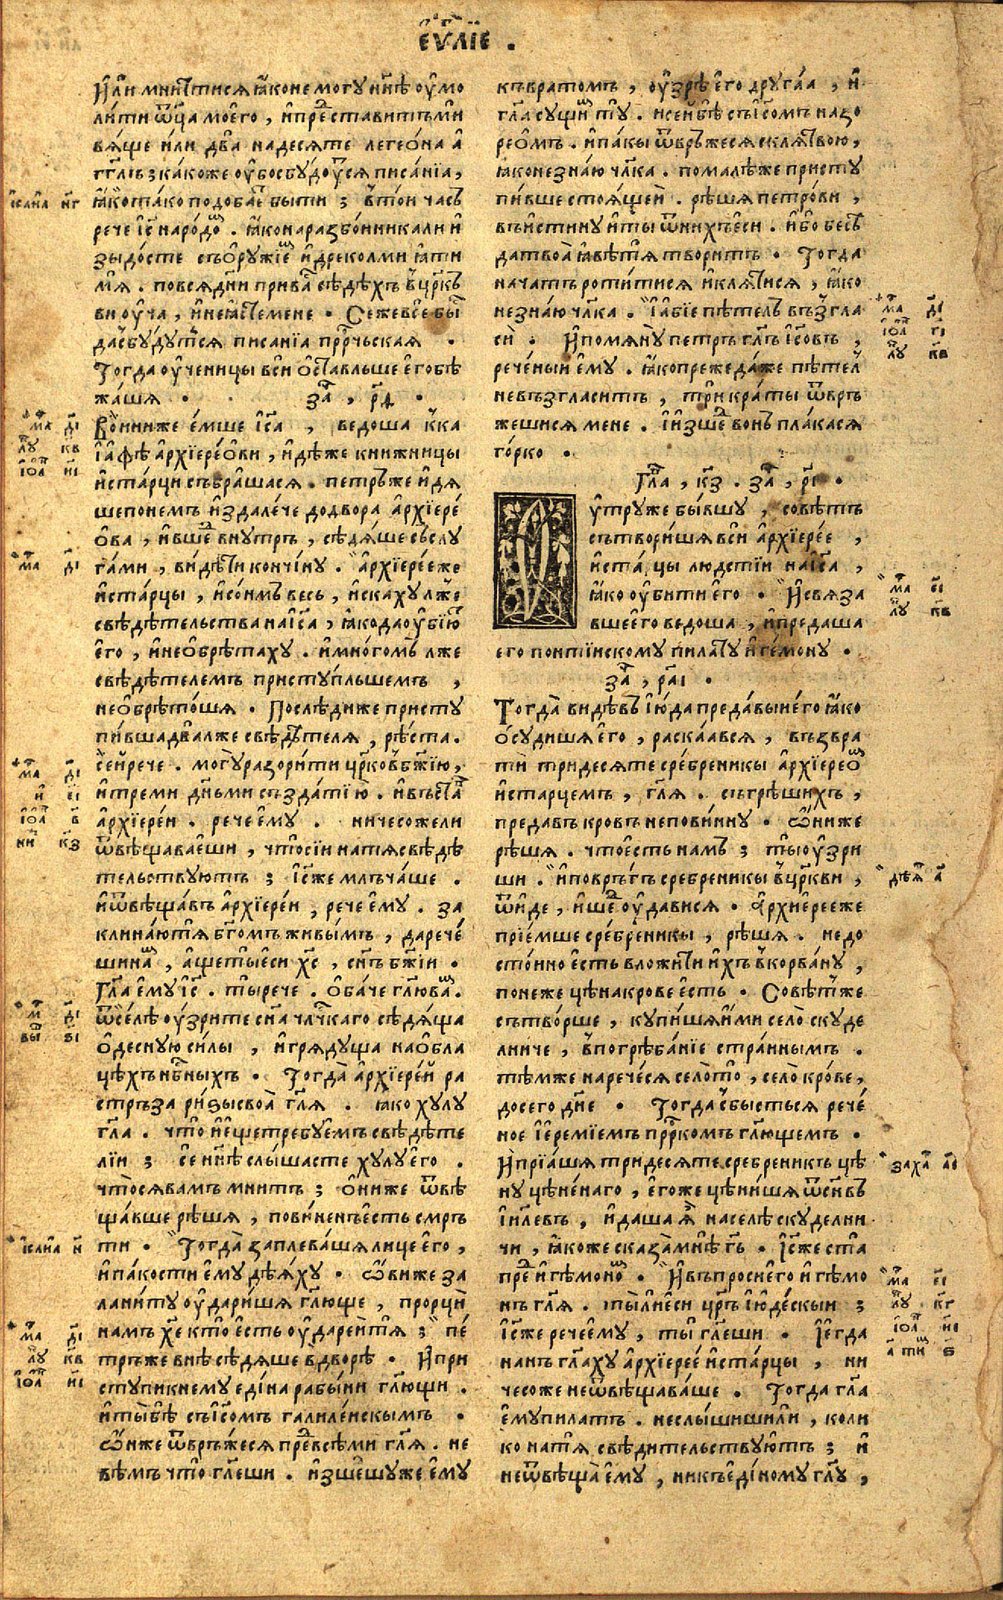 є҆ѵⷢ҇лїе .
И҆ли мни́ттися ꙗ҆коне могу нн҃ѣ оу҆мо
ли́ти ѿц҃а моего̀ , и҆прⷣеставитъми
вѧ́ще и҆лѝ два̀ надесѧте легео́на а҆
гг҃лъ; ка́коже оу҆босбꙋ́дꙋтся писа́нїѧ,
ꙗ҆кота́ко подоба́еⷮ бы́ти ; в̾то́и ча́съ
рече і҆с҃ наро́дѡⷨ . ꙗ҆ко на разбо́иникали и҆
зыдо́сте съѻ҆рꙋ́жїеⷨ и҆дреко́лми ꙗ҆ти
мѧ̀ . повсѧдн҃и прива́съ сѣдѣ́хъ в̾цр҃кв
ви оу҆ча̀ , и҆не ꙗ҆́сте менѐ . Сеже всѐ бы́сть
да сбꙋ́дꙋтся писа́нїа прⷪ҇рчьская .
Тогда оу҆ченицы вси ѡ҆ста́вльше е҆го бѣ
жа́шѧ . за҃ⷱ , р҃ѳ .
Во́ини же е҆́мше і҆с҃а , ведо́ша к̾ка
їа́фѣ а҆рхїере́ови , и҆дѣ́же кни́жницы
и҆ста́рци събра́шася . петръже и҆дѧ́
шепоне́мъ и҆здале́че дод̾вора̀ а҆рхїере́
ѻва , и҆вшеⷣ внꙋ́трь , сѣдѧ́ше съслꙋ
га́ми , ви́дѣти кончи́нꙋ . а҆рхїере́еже
и҆ста́рцы , и҆со́нмъ ве́сь , и҆ска́хꙋ лже
свѣдѣ́тельства наі҆с҃а , ꙗ҆кода оу҆бїю́тъ
е҆го , и҆не ѻ҆брѣта́хꙋ . и҆мно́гомъ лже
свѣдѣ́телемъ пристꙋ́пльшемъ ,
не ѻ҆брѣто́шѧ . Послѣдиже пристꙋ
пи́вша два̀ лже свѣдѣ́телѧ , рѣ́ста .
се́йрече . могꙋ разори́ти цр҃ковь бж҃їю ,
и҆треми дн҃ьми създа́ти ю . и҆въста́въ
а҆рхїере́и . рече е҆мꙋ̀ . ничесожели
ѿвѣщава́еши , что́сїи натѧ свѣдѣ́
тельствꙋютъ ; і҆с҃же млъча́ше .
и҆ѿвѣща́въ а҆рхїере́и , рече е҆мꙋ . за
клина́ю тѧ бг҃омъ живы́мъ , дарече́
шина́мъ , а҆ще ты̀ еси хс҃ , сн҃ъ бж҃їи .
Гл҃а е҆мꙋ і҆с҃ . ты̀ рече . ѻ҆ба́че гл҃ю ва́мъ .
ѿсе́лѣ оу҆зрите сн҃а чл҃чкаго сѣдѧ́ща
ѻ҆деснꙋ́ю си́лы , и҆грѧдꙋ́ща на ѻ҆бла
цѣ́хъ нбⷭ҇ныхъ . Тогда̀ а҆рхїере́и ра
стръза̀ ри́зы своѧ̀ гл҃ѧ . ꙗ҆ко хꙋлꙋ
гл҃а . что̀ и҆еще тре́бꙋемъ свѣдѣте
лїи ; се нн҃ѣ слы́шасте хꙋлꙋ е҆го .
что́сѧ вамъ мни́тъ ; ѻ҆ниже ѿвѣ
ща́вше рѣ́шѧ , пови́ненъ е҆сть смр҃ь
ти . Тогда̀ заплева́шѧ лице е҆го ,
и҆па́кости е҆мꙋ дѣ́ѧхꙋ . ѻ҆́виже за
лани́тꙋ оу҆да́ришѧ гл҃юще , прорцы̀
намъ хс҃е кто̀ е҆сть оу҆дарѐй тѧ ; пе́
тръже внѣ̀ сѣдѧ́ше в̾дворѣ̀ . И҆при
стꙋпи к̾немꙋ едина рабы́ни гл҃ющи .
и҆ты̀ бѣ̀ съі҆с҃омъ галиле́искымъ .
ѻ҆́ниже ѿвръ́жесѧ преⷣвсѣ́ми гл҃ѧ . не
вѣ́мъ что̀ гл҃еши . и҆зше́шꙋже е҆мꙋ
къвратомъ , оу҆зрѣ̀ е҆го дрꙋга́ѧ , и҆
гл҃а сꙋщиⷨ тꙋ̀ . и҆сей бѣ съі҆с҃омъ назо
рео́мъ . и҆па́кы ѿвръ́жесѧ склѧ́твою ,
ꙗ҆ко незна́ю чл҃ка . пома́лѣже пристꙋ
пи́вше стоѧ́щеи . рѣ́шѧ петро́ви ,
въи҆́стинꙋ и҆ты̀ ѿни́хъ е҆си . и҆́бо бесѣ
да твоѧ̀ ꙗ҆вѣ́ тѧ твори́тъ . Тогда
нача́тъ роти́тисѧ и҆клѧ́тисѧ , ꙗ҆ко
незна́ю чл҃ка . і҆а́бїе пѣ́тель възгла
си̂ . И҆помѧнꙋ̀ пе́тръ гл҃ъ і҆с҃овъ ,
рече́ный е҆мꙋ . ꙗ҆ко пре́же да́же пѣ́тел
невъзгласи́тъ , три кра́ты ѿвръ
жешися мене . и҆и҆зше́дъ во́нъ пла́касѧ
го́рко .
Гл҃а , к҃з . за҃ⷱ , р҃і .
оу҆трꙋже бы́вшꙋ , совѣ́тъ
сътвори́шѧ вси̂ а҆рхїере́е ,
и҆ста́рцы лю́дстїи наі҆с҃а ,
ꙗ҆ко оу҆би́ти е҆го . И҆свѧза
вше е҆го ведо́ша , и҆преда́ша
его понти́искомꙋ пила́тꙋ и҆ге́монꙋ .
за҃ⷱ , р҃аі .
Тогда̀ ви́дѣвъ і҆ю́да преда́выи е҆го ꙗ҆ко
ѻ҆сꙋди́шѧ е҆го , раска́авсѧ , възвра
ти̂ три́десѧте сре́бреникы а҆рхїерео́мъ
и҆ста́рцемъ , гл҃ѧ . съгрѣши́хъ ,
преда́въ кро́въ непови́ннꙋ . ѻ҆ниже
рѣ́шѧ . что́ есть на́мъ ; ты̀ оу҆зри
ши . и҆поврѣ́гъ сре́бреникы в̾цр҃кви ,
ѿи́де , и҆ше́дъ оу҆дави́сѧ . а҆рхиере́еже
прїе́мше сре́бреникы , рѣ́шѧ . недо
сто́ино е҆сть вложи́ти и҆хъ в̾корва́нꙋ ,
поне́же цѣна̀ кро́ве е҆сть . Совѣ́тъже
сътво́рше , кꙋпи́шѧ и҆́ми село̀ скꙋде
лниче , в̾погрѣба́нїе стра́ннымъ .
тѣ́мже нарече́ся село̀ то̀ , село̀ кро́ве ,
досего̀ дн҃е . Тогда сбы́стьсѧ рече́
ное і҆еремі́емъ прⷪ҇ркомъ гл҃ющемъ .
И҆прїѧ́шѧ три́десѧте сре́бреникъ цѣ
нꙋ цѣне́наго , е҆го́же цѣни́шѧ ѿсн҃въ
і҆и҃левъ , и҆да́ша ѧ҆̀ на селѣ̀ скꙋде́лни
чи , ꙗ҆коже сказа́ мнѣ̀ гь҃ . і҆с҃же ста̀
преⷣ и҆ге́моноⷨ . И҆въпроси̂ е҆го и҆ге́мо
нъ гл҃ѧ . ты́ ли е҆си цр҃ь і҆юде́скыи ;
і҆с҃же рече е҆мꙋ , ты̀ гл҃еши . І҆егда̀
на́нь гл҃ахꙋ а҆рхїере́е и҆ста́рцы , ни
чесо́же не ѿвѣщава́ше . Тогда гл҃а
е҆мꙋ пила́тъ . неслы́шишили , коли
ко на тѧ̀ свѣди́тельствꙋютъ ; и҆
не ѿвѣща̀ е҆мꙋ , никъеди́номꙋ гл҃ꙋ ,